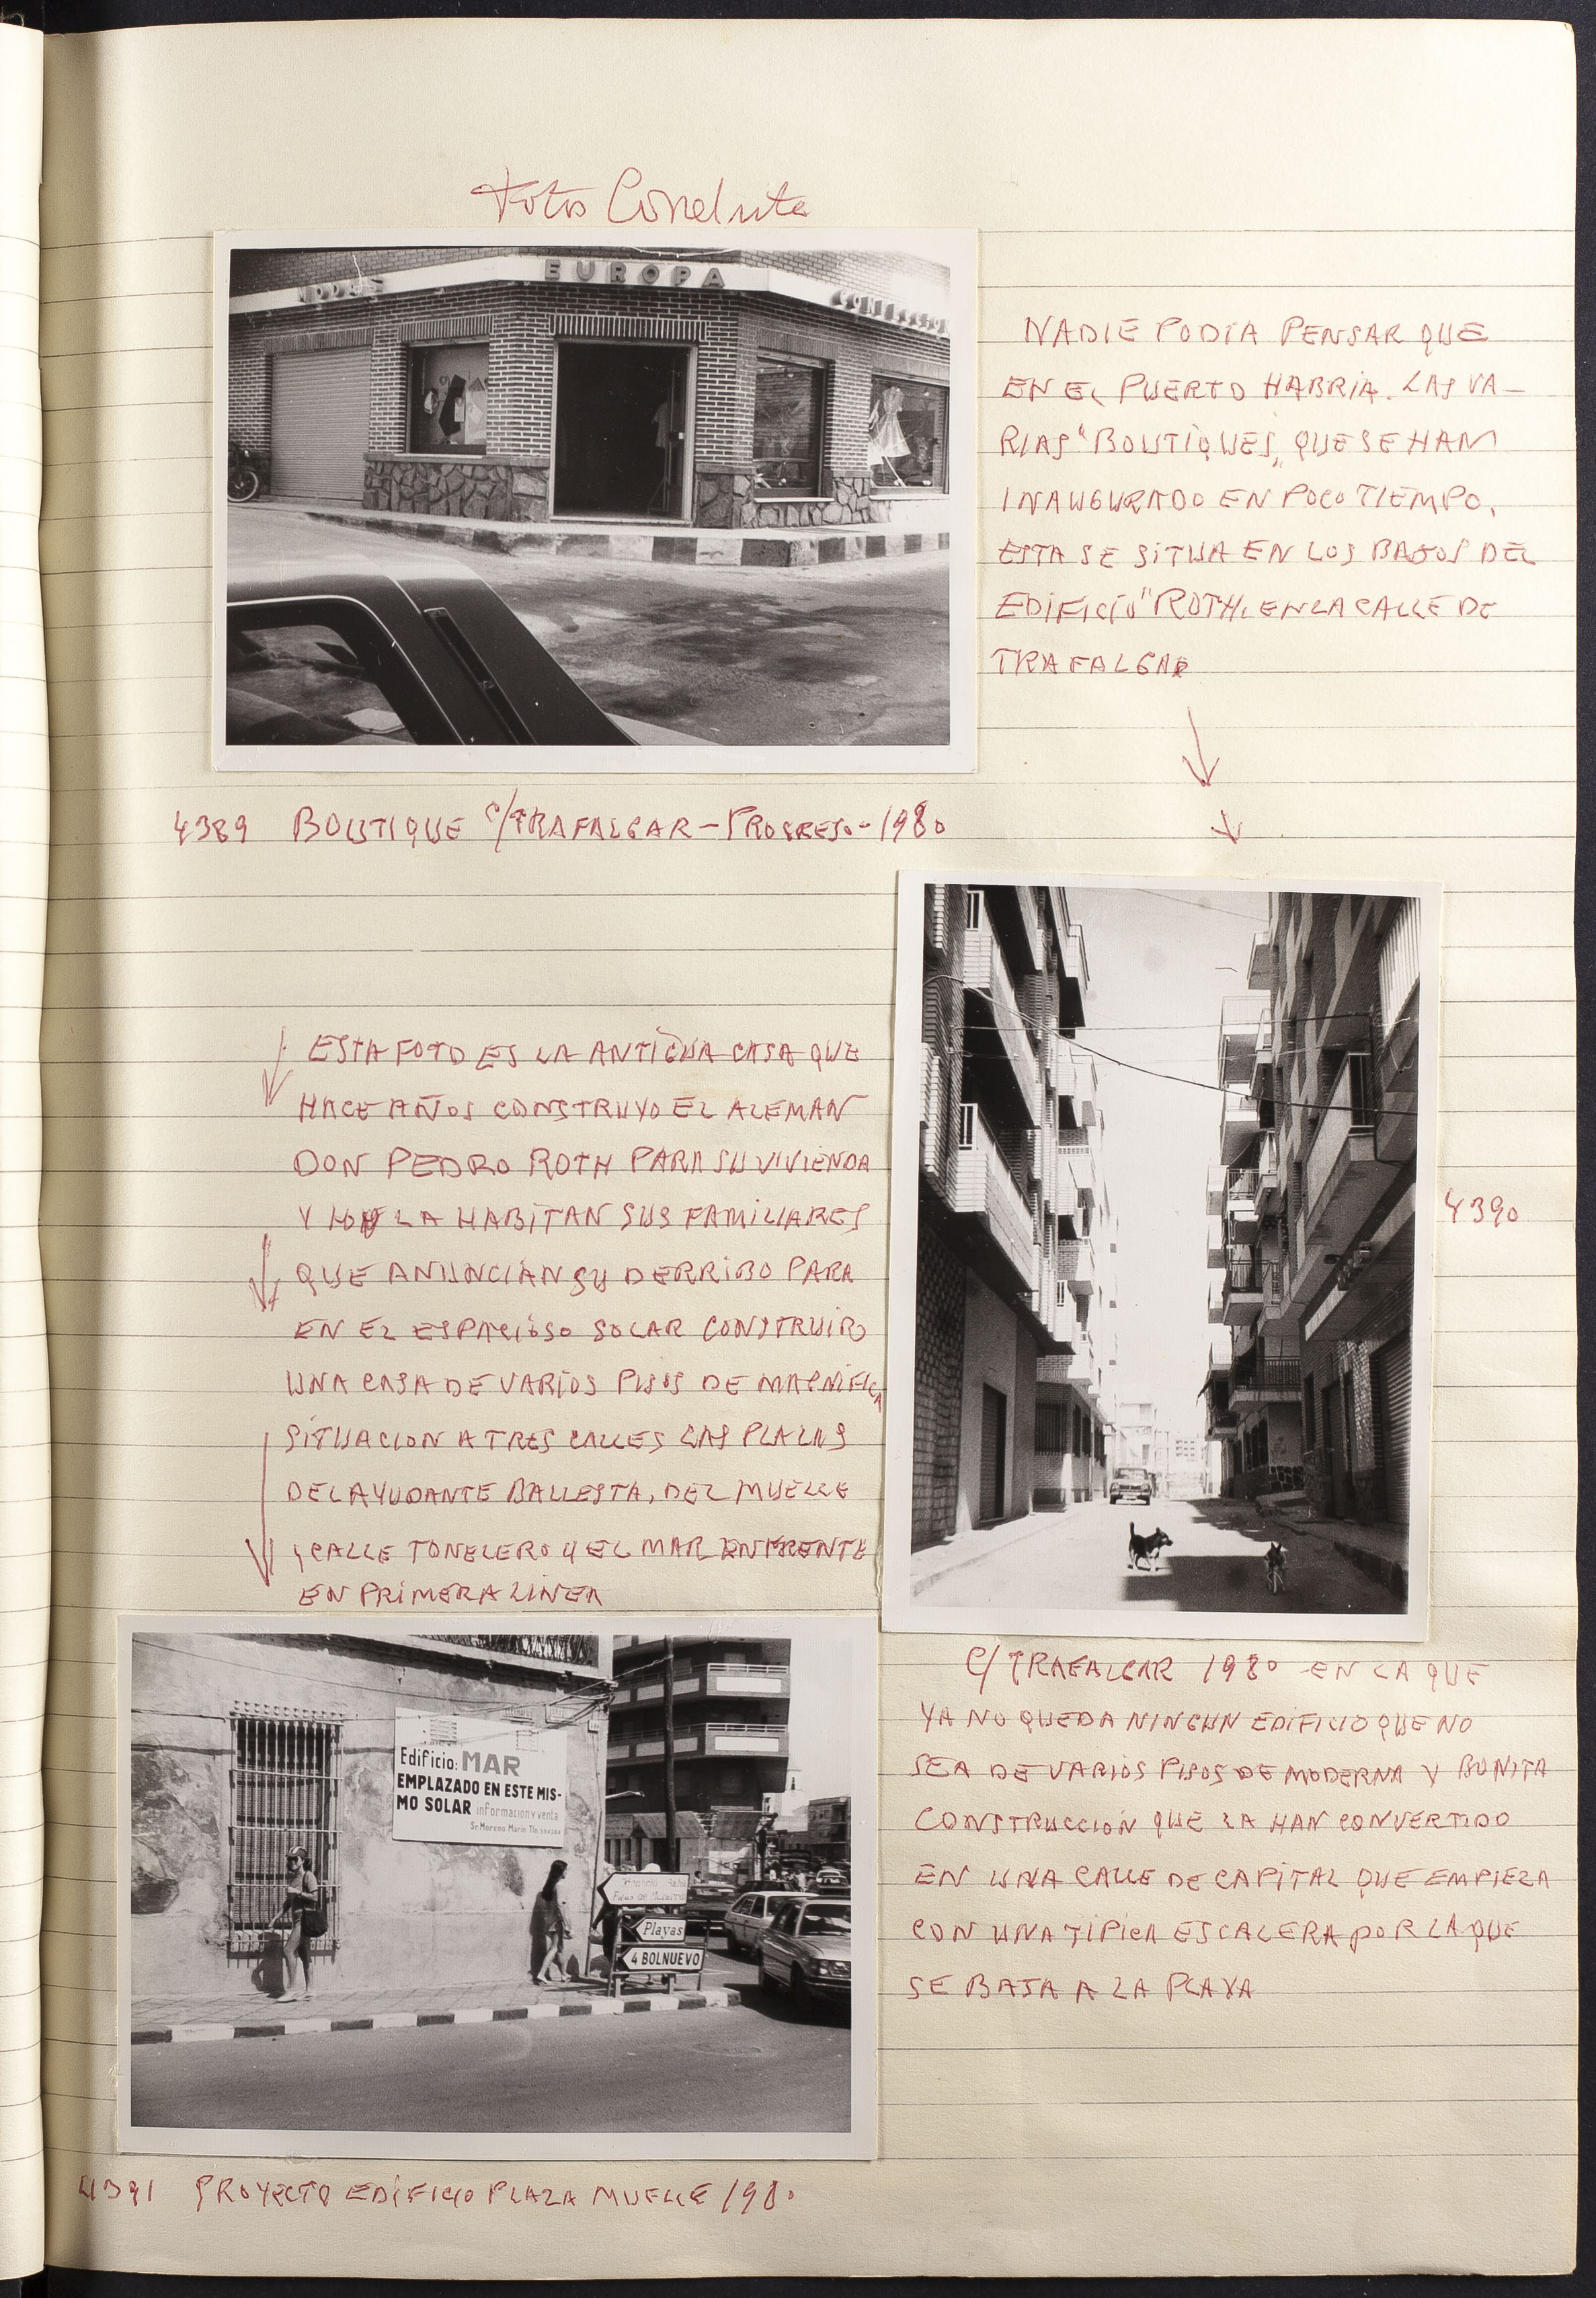 Fotos Condrita
EUROPA
NADIE PODIA PENSAR QUE
EN EL PUERTO HABRIA. LAS VA-
RIAS "BOUTIQUES" QUE SE HAN
INAUGURADO EN POCO TIEMPO.
ESTA SE SITUA EN LOS BAJOS DEL
EDIFICIO "ROTH. EN LA CALLE DE
TRAFALGAR
4389 BOUTIQUE C/TRAFALGAR-PROGRESO-1980
ESTA FOTO ES LA ANTIGUA CASA QUE
HACE AÑOS CONSTRUYO EL ALEMAN
DON PEDRO ROTH PARA SU VIVIENDA
Y HOY LA HABITAN SUS FAMILIARES
QUE ANUNCIAN SU DERRIBO PARA
EN EL ESPACIOSO SOLAR CONSTRUIR
UNA CASA DE VARIOS PISOS DE MAGNIFICA
SITUACION A TRES CALLES LAS PLAZAS
DEL AYUDANTE BALLESTA, DEL MUELLE
, CALLE TONELERO Y EL MAR ENFRENTE
EN PRIMERA LINEA
4390
C/TRAFALGAR 1980 EN LA QUE
YA NO QUEDA NINGUN EDIFICIO QUE NO
SEA DE VARIOS PISOS DE MODERNA Y BONITA
CONSTRUCCIÓN QUE LA HAN CONVERTIDO
EN UNA CALLE DE CAPITAL QUE EMPIEZA
CON UNA TIPICA ESCALERA POR LA QUE
SE BAJA A LA PLAYA
Edificio: MAR
EMPLAZADO EN ESTE MIS-
MO SOLAR informacion y venta
Sr. Moreno Marin Tln.
Playas
4 BOLNUEVO
4391 PROYECTO EDIFICIO PLAZA MUELLE 1980